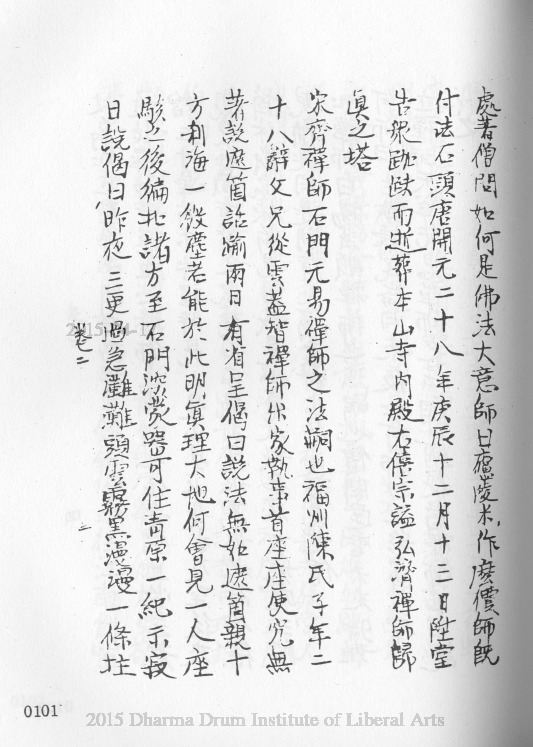 處者僧問如何是佛法大意師曰廬陵米作麼價師既
付法石頭唐開元二十八年庚辰十二月十三日陞堂
告衆跏趺而逝葬本山寺內殿右僖宗謚弘濟禪師歸
真之塔
宋齊禪師石門元易禪師之法嗣也福州陳氏子年二
十八辭父兄從雲蓋智禪師出家執事首座座使究無
著說處箇話踰兩日有省呈偈曰說法無如這箇親十
方刹海一發塵若能於此明真理大地何曾見一人座
駭之後徧扣諸方至石門深蒙器可住青原一紀示寂
日說偈曰昨夜三更過急灘灘頭雲霧黑漫漫一條拄
卷二
二
0101
2015 Dharma Drum Institute of Liberal Arts